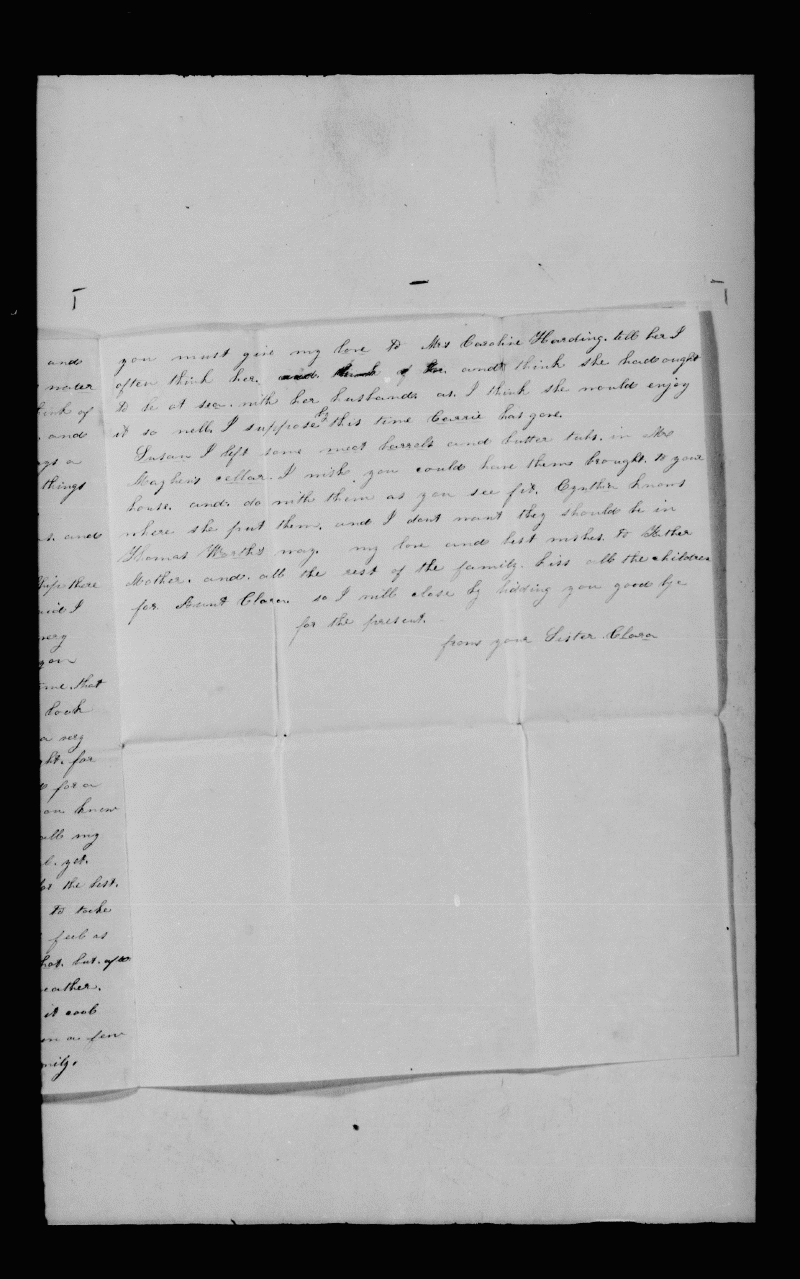 and
water
think of
and
things
and
Ship there
said I
very
you
time that
look
a very
for
for a
knew
all my
yet.
for the best.
to take
feel as
hot. but. of
weather.
it cool
in a few
you must give my love to Mrs Caroline Harding. tell her I
often think her. and think of her. and think she had ought
to be at sea. with her husband. as. I think she would enjoy
it so well. I suppose by this time Carrie has gone.
Susan I left some meat barrels and butter tubs. in Mr
cellar. I wish you could have them brought. to your
house. and. do with them as you see fit. Cynthia knows
where she put them. and I dont want they should be in
Thomas Worths way. my love and best wishes. to Father
Mother. and. all the rest of the family. kiss all the children
for Aunt Clara. so I will close by bidding you good bye
for the present.
from your Sister Clara